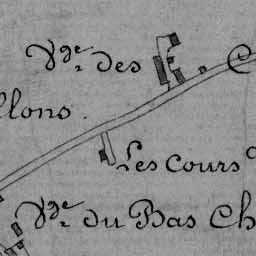 Vge. des C
llons.
Les Cours
Vge. du Bas Ch